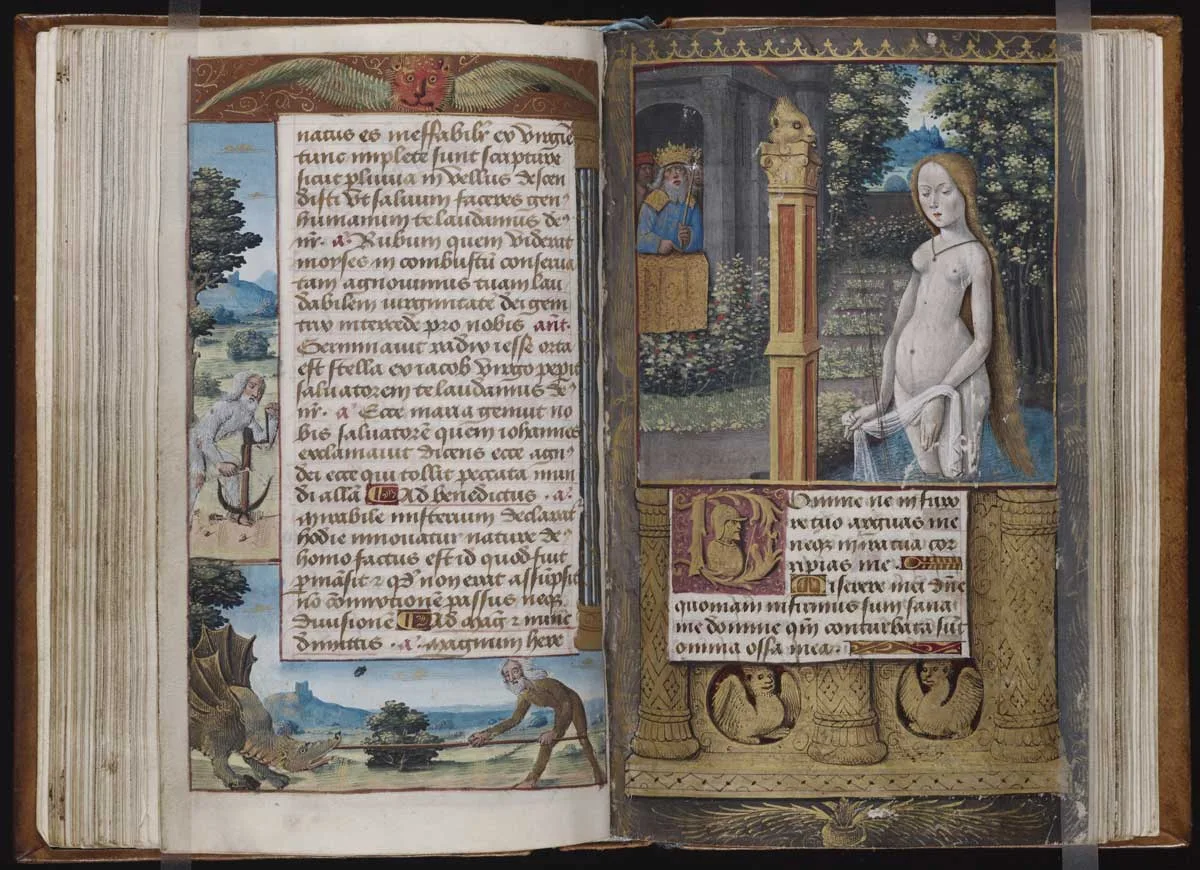 natus es ineffabilr ex virgine
tunc implete sunt scripture
sicut pluvia in vellus descen
disti ut saluum faceres gen
humanum te laudamus de
nr. a. Rubum quem viderat
moyses in combustū conserva
tam agnovimus tuam lau
dabilem virginitatē dei geni
trix intercede pro nobis ant.
Germinavit radix iesse orta
est stella ex iacob virgo pepit
salvatorem te laudamus de
nr. a Ecce maria genuit no
bis salvatorē quem iohannes
exclamavit dicens ecce agn
dei ecce qui tollit peccata mun
di allā Ad benedictus . a.
Mirabile misterium declarat
hodie innovatur nature de
homo factus est id quod fuit
pmāsit z qd non erat assūpsit
nō cōmixtionē passus neq.
divisionē Ad mag z nunc
dimittis . a. Magnum here
Domine ne in furo
re tuo arguas me
neq in ira tua cor
ripias me.
Miserere mei dn̄e
quoniam infirmus sum sana
me domine qm̄ conturbata sūt
omnia ossa mea.